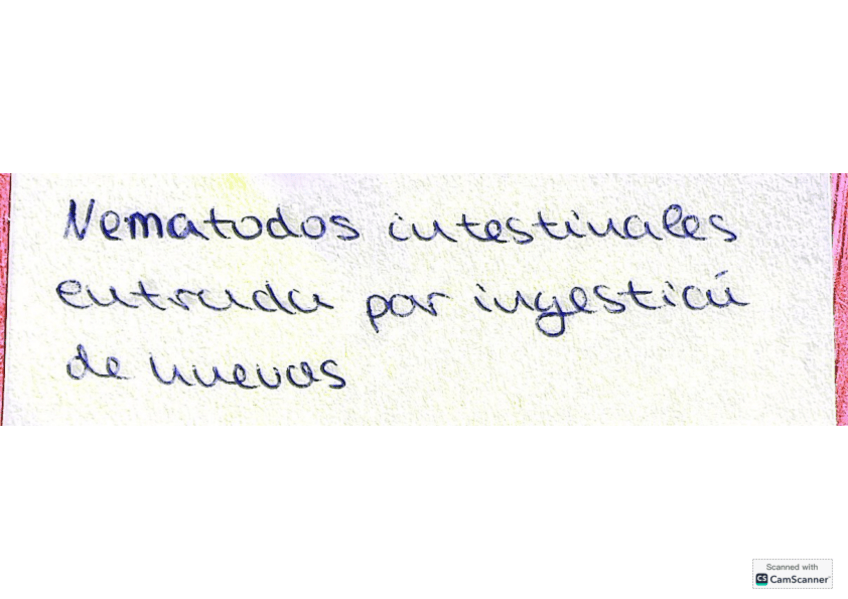 Nematodos intestinales
entrada por ingestión
de huevos
Scanned with
CS CamScanner